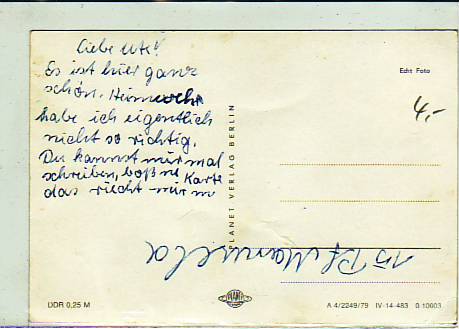 Liebe Ute!
Es ist hier ganz
schön. Heimweh
habe ich eigentlich
nicht so richtig.
Du kannst mir mal
schreiben, bloß ne Karte
das reicht mir
Echt Foto
4,-
PLANET VERLAG BERLIN
PLANET
UDR 0,25 M
A 4/2249/79 IV-14-483 0 10003